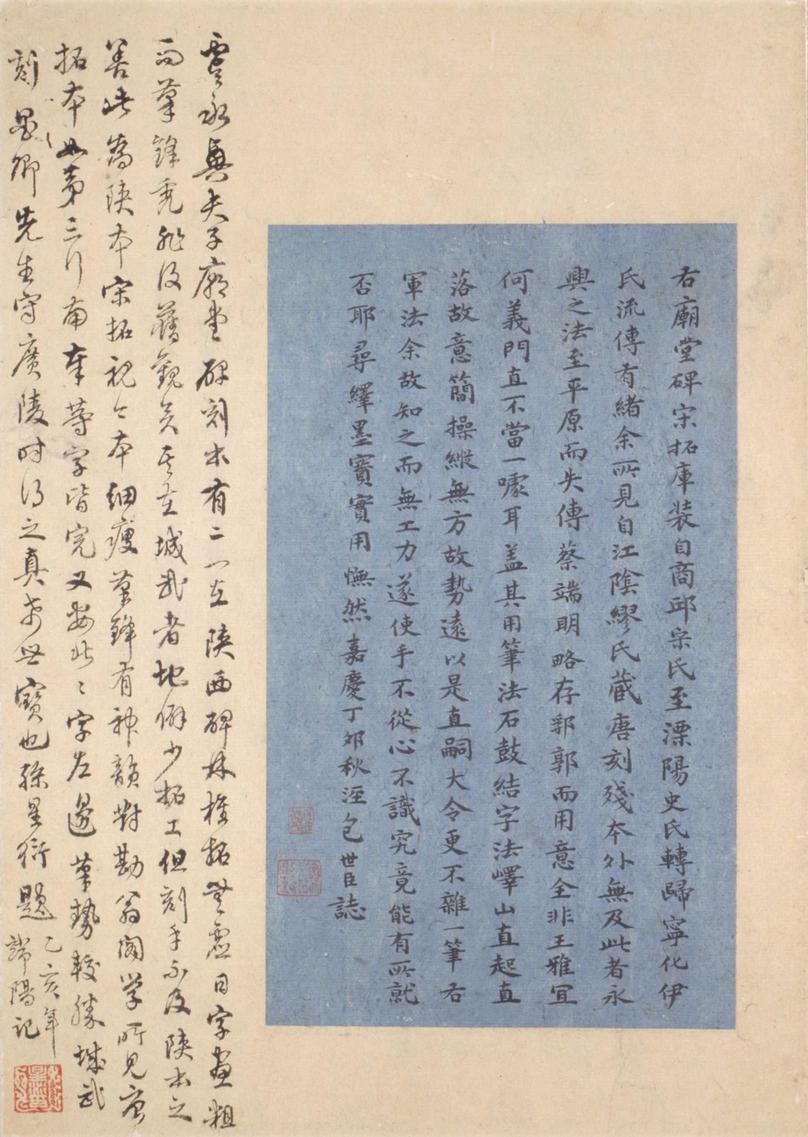 右廟堂碑宋拓庫裝自商邱宋氏至溧陽史氏轉歸寧化伊
氏流傳有緒余所見自江陰繆氏藏唐刻殘本外無及此者永
興之法至平原而失傳蔡端明略存郛郭而用意全非王雅宜
何義門直不當一噱耳蓋其用筆法石鼓結字法嶧山直起直
落故意簡操縱無方故勢遠以是直嗣大令更不雜一筆右
軍法余故知之而無工力遂使手不從心不識究竟能有所就
否耶尋繹墨寶實用憮然嘉慶丁卯秋涇包世臣誌
虞永興夫子廟堂碑刻本有二一在陝西碑林椎拓無虛日字畫粗
而筆鋒禿非復舊觀矣其在城武者地僻少拓工但刻手不及陝本之
善此為陝本宋拓視今本細瘦筆鋒有神韻對勘翁閣學所見唐
拓本如第三行南奉等字皆完又安此二字左邊筆勢較勝城武
刻墨卿先生守廣陵時得之真希世寶也孫星衍題乙亥年
端陽記